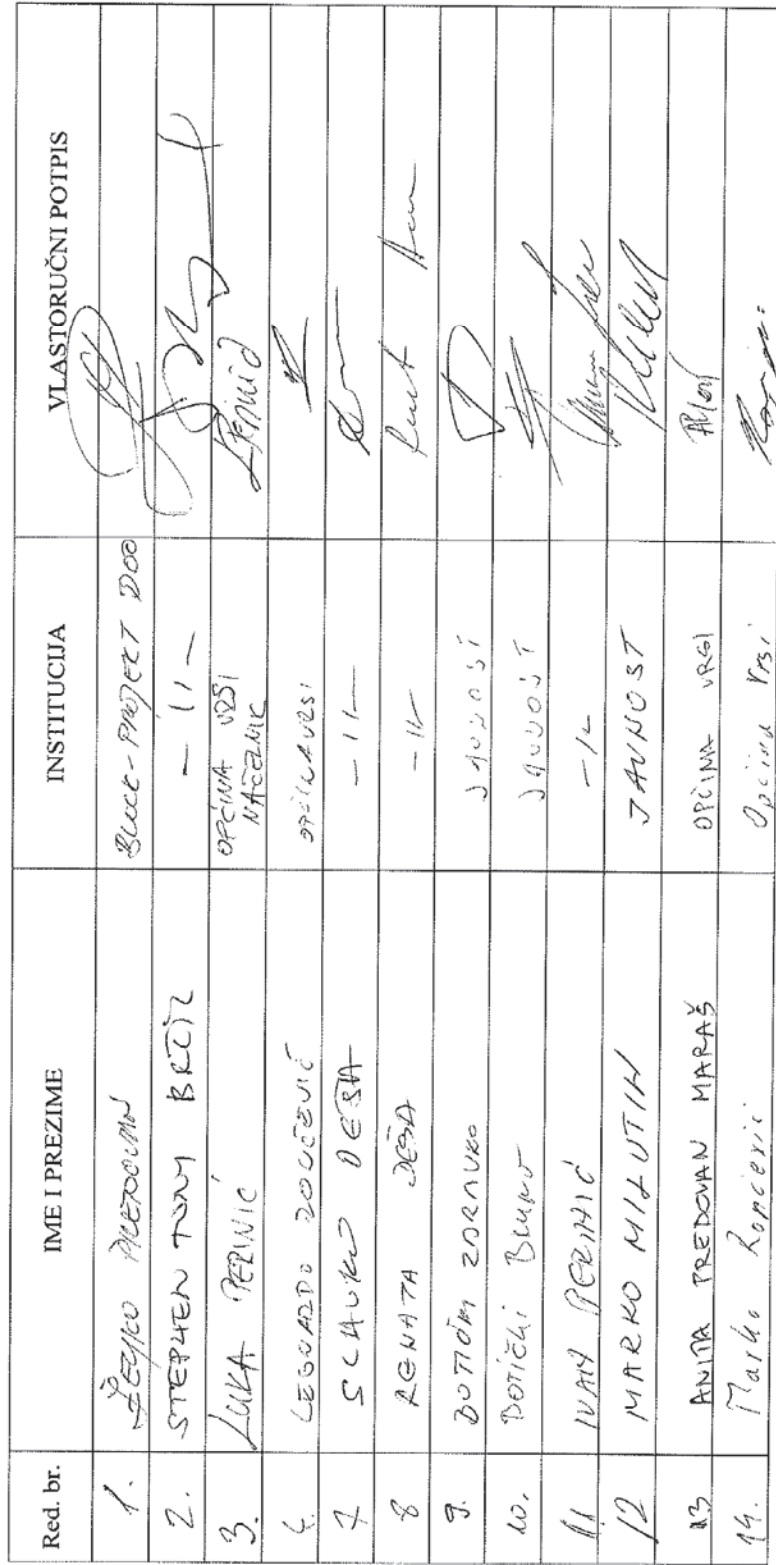 Red. br. IME I PREZIME INSTITUCIJA VLASTORUČNI POTPIS
1. ŽELJKO PREDOVAN BLOCK-PROJEKT DOO
2. STEPHEN TONY BRČIĆ -11-
3. LUKA PERINIĆ OPĆINA VRSI
NAČELNIK
LEONARDO OPĆINA VRSI
7 SLAVKO DEŠA -11-
8 RENATA DEŠA -11-
9. ZDRAVKO JAVNOST
10. JAVNOST
11 IVAN PERINIĆ -11-
12 MARKO MILUTIN JAVNOST
13 ANITA PREDOVAN MARAŠ OPĆINA VRSI
14. Marko Rončević Općina Vrsi